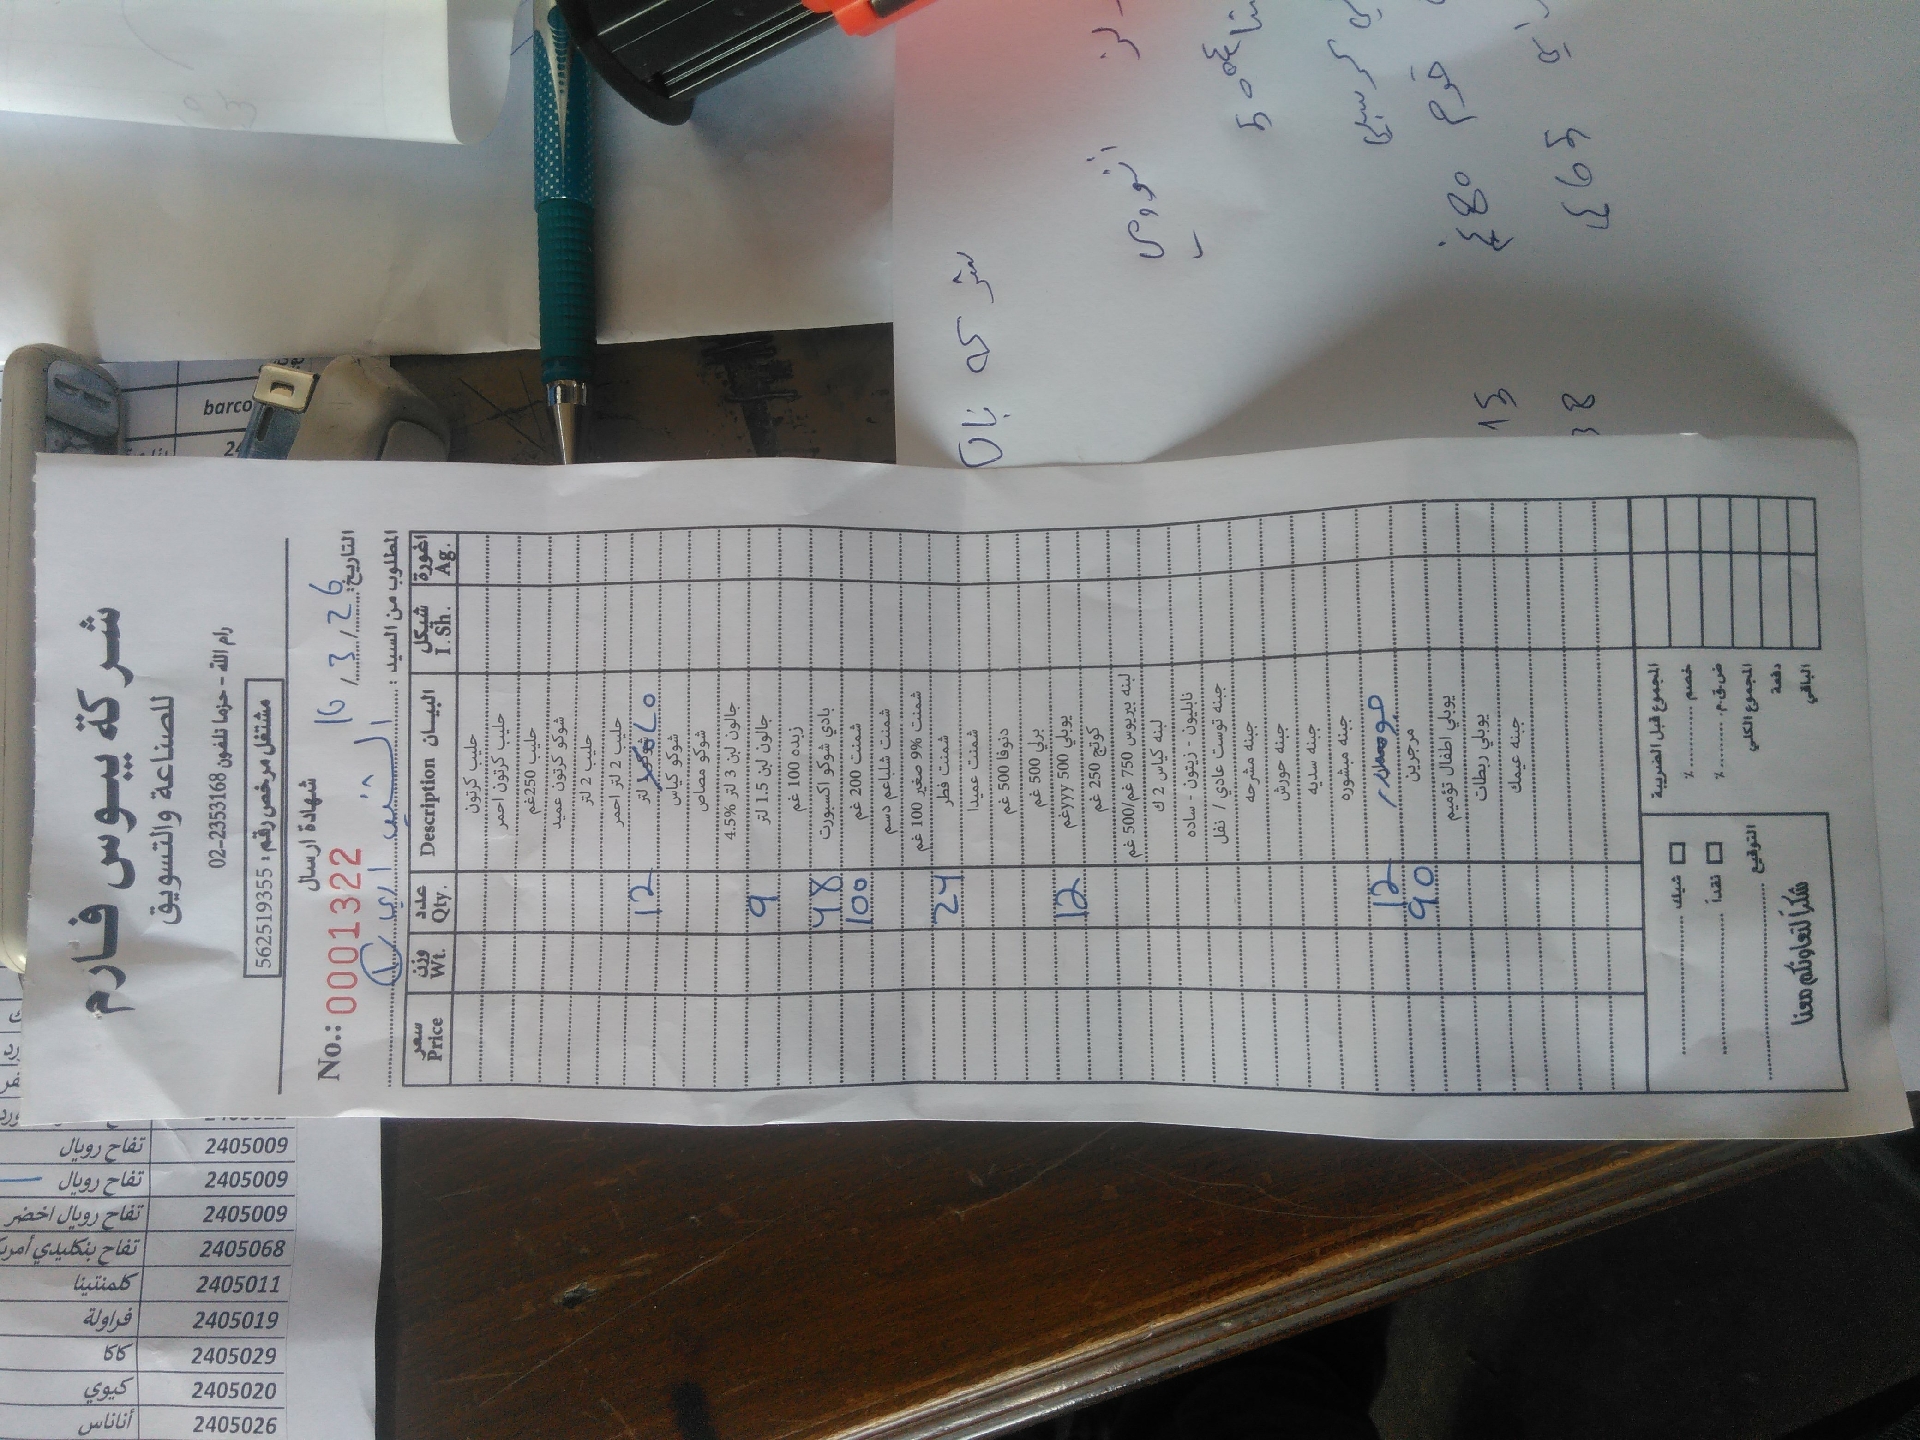 شركة يبوس فارم
للصناعة والتسويق
رام الله - حزما تلفون 02-2353168
مشتغل مرخص رقم: 562519355
شهادة ارسال
No.: 0001322
التاريخ: 16/3/26
المطلوب من السيد:
سعر Price وزن Wt. عدد Qty. البيــان Description شيكل I. Sh. اغورة Ag.
حليب كرتون
حليب كرتون احمر
حليب 250غم
شوكو كرتون عميد
حليب 2 لتر
حليب 2 لتر احمر
12 لتر
شوكو كياس
شوكو مصاص
جالون لبن 3 لتر 4.5%
9 جالون لبن 1.5 لتر
زبده 100 غم
48 بادي شوكو اكسبورت
100 شمنت 200 غم
شمنت شلباعم دسم
شمنت 9% صغير 100 غم
24 شمنت قطر
شمنت عميدا
دنوفا 500 غم
برلي 500 غم
12 يوبلي 500 yyyغم
كوتج 250 غم
لبنه بيريوس 750 غم/500 غم
لبنه كياس 2 ك
نابليون - زيتون - ساده
جبنه توست عادي / نفل
جبنه مشرحه
جبنه حورش
جبنه سديه
جبنه مبشوره
12
90 مرجرين
يوبلي اطفال توميم
يوبلي ربطات
جبنه عيمك
المجموع قبل الضريبة
خصم ........ ٪
ض.ق.م ........ ٪
المجموع الكلي
دفعة
الباقي
شيك
نقداً
التوقيع
شكراً لتعاونكم معنا
barco
2405009 تفاح رويال
2405009 تفاح رويال
2405009 تفاح رويال اخضر
2405068 تفاح بنكليدي
2405011 كلمنتينا
2405019 فراولة
2405029 كاكا
2405020 كيوي
2405026 أناناس
شركه
15